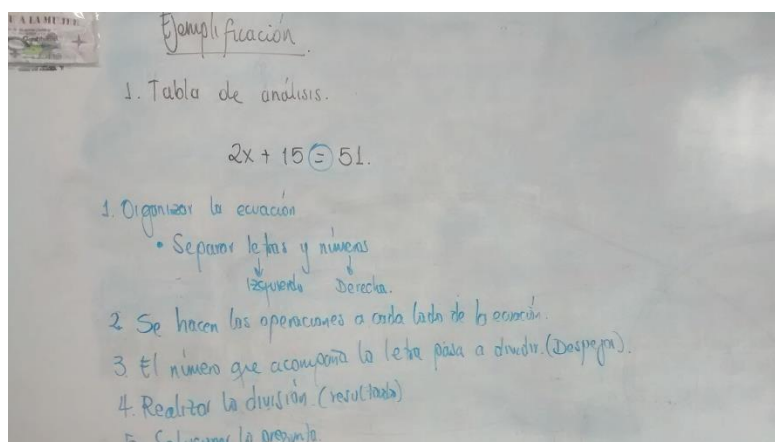 A LA MUJER
Ejemplificación.
1. Tabla de análisis.
2x + 15 = 51.
1. Organizar la ecuación
• Separar letras y números
Izquierda Derecha.
2 Se hacen las operaciones a cada lado de la ecuación.
3 El número que acompaña la letra pasa a dividir. (Despejar).
4. Realizar la división. (resultado)
5. Solucionar la pregunta.